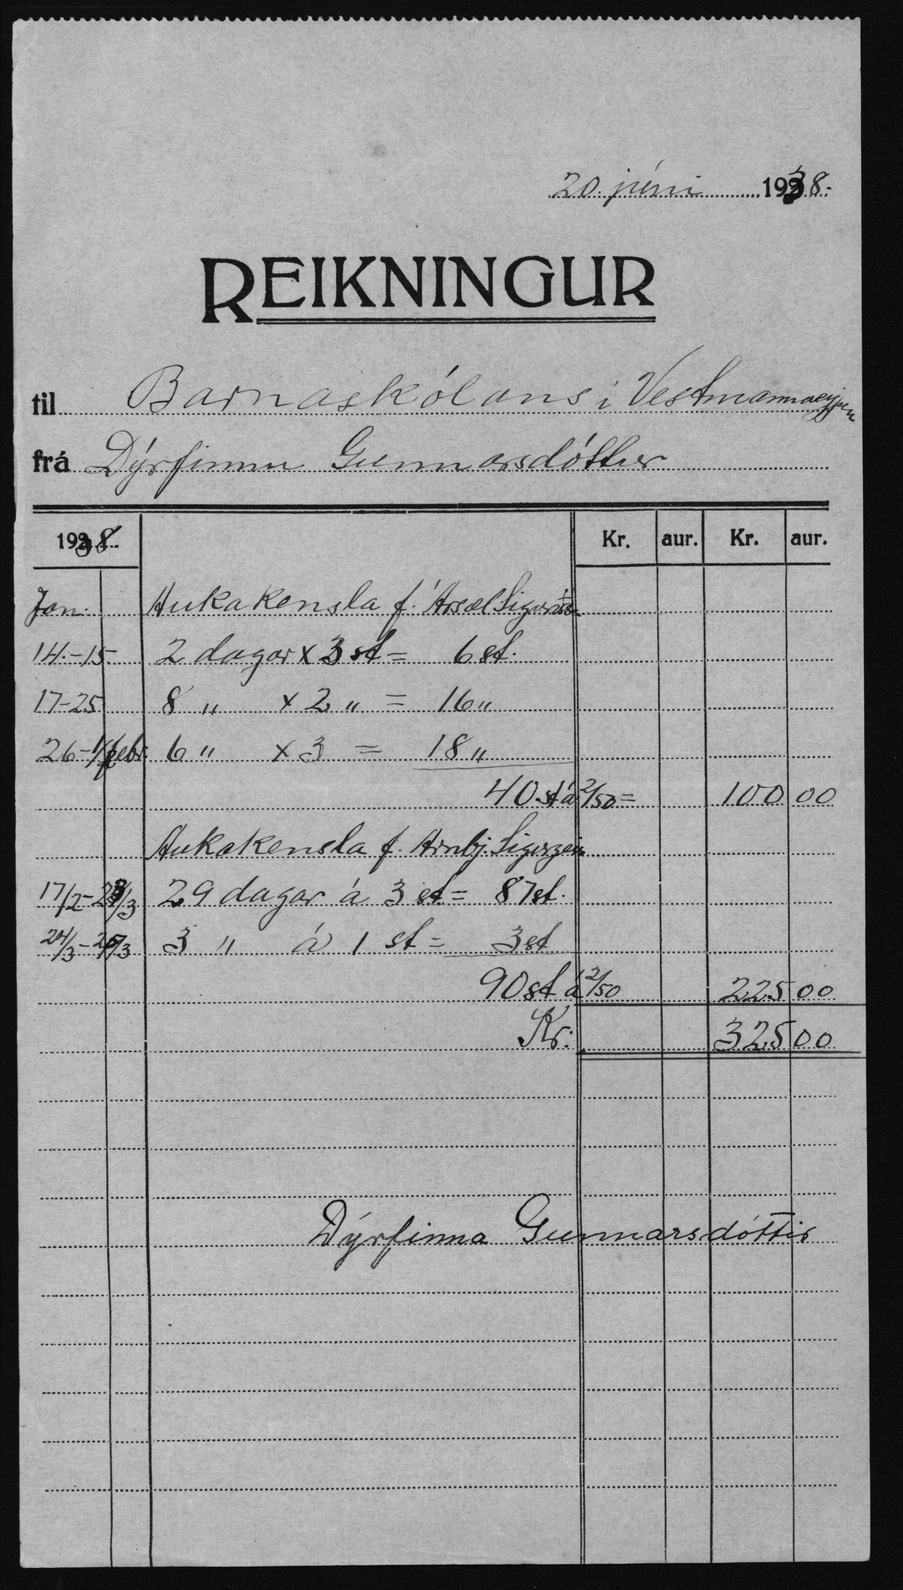 20. júní 1938.
REIKNINGUR
til Barnaskólans í Vestmannaeyjum
frá Dýrfinnu Gunnarsdóttur
1938. Kr. aur. Kr. aur.
Jan. Aukakensla f. Ársæl
14.-15 2 dagar x 3 st = 6 st.
17-25 8 " x 2 " = 16 "
26-1/febr. 6 " x 3 = 18 "
40 st á 2/50 = 100 00
Aukakensla f. Arnbj.
17/2-23/3 29 dagar á 3 st = 87 st.
24/3-25/3 3 " á 1 st = 3 st
90 st á 2/50 225 00
Kr. 325 00
Dýrfinna Gunnarsdóttir